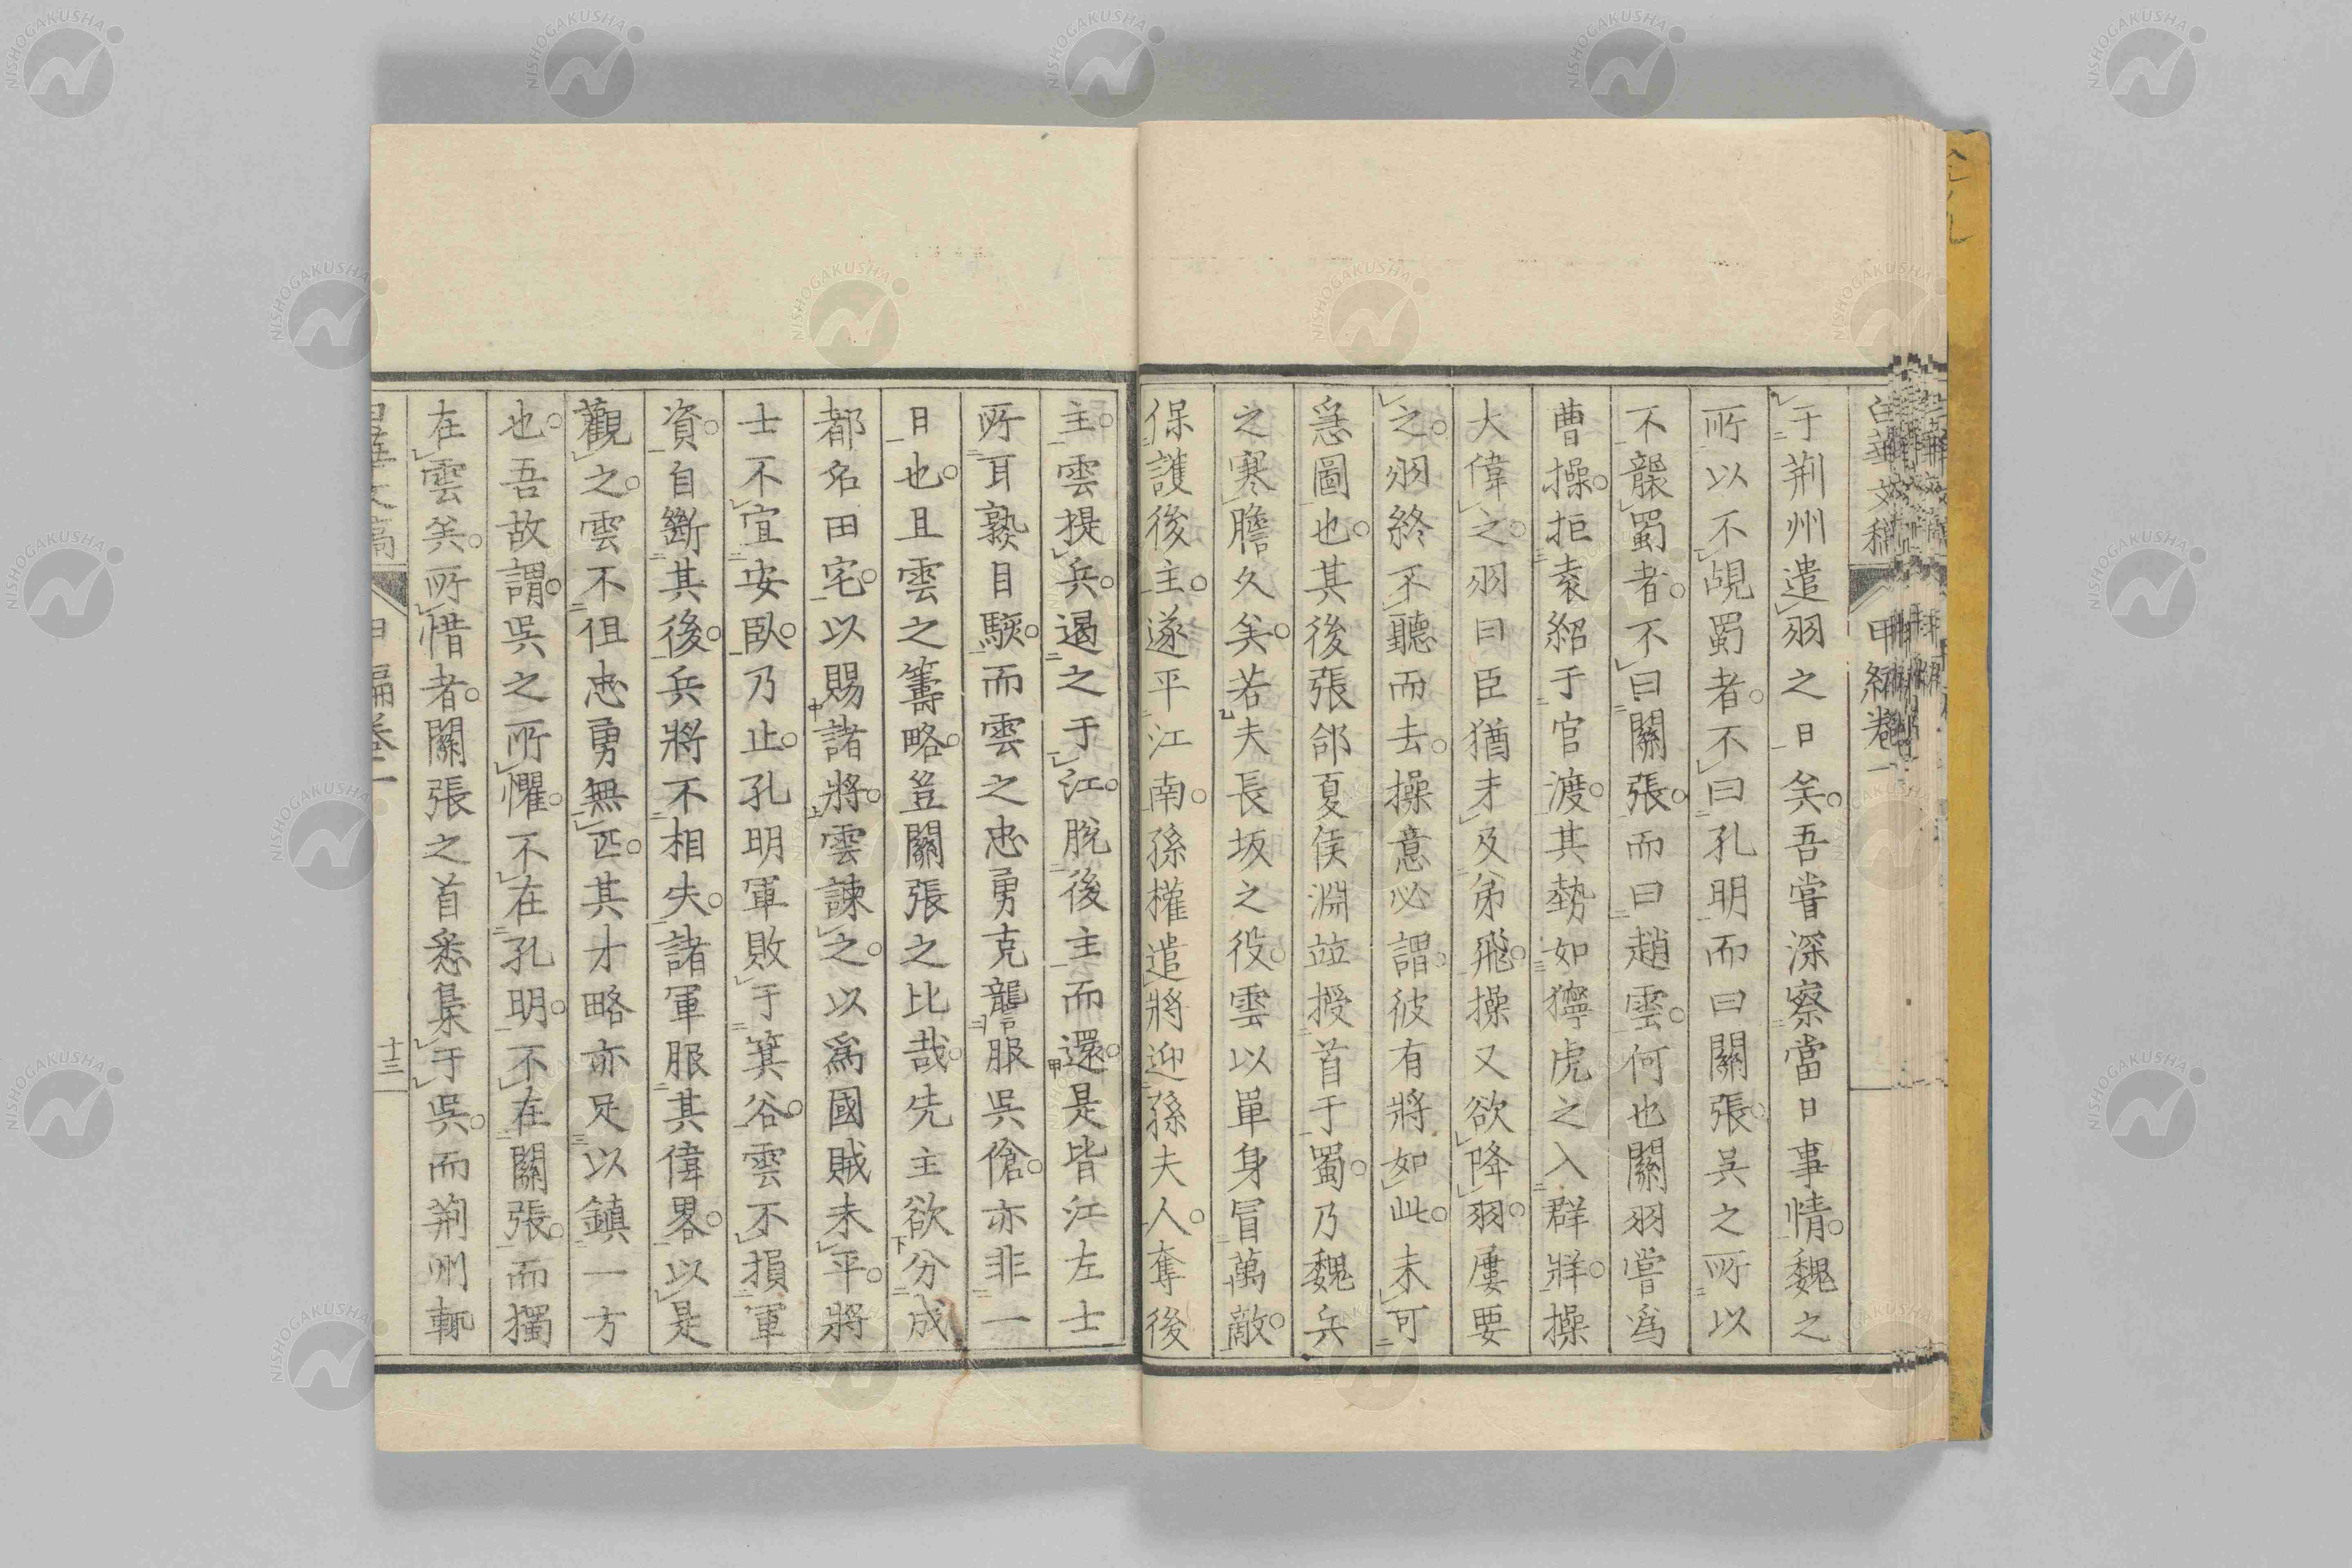 于荆州遣羽之日矣。吾嘗深察當日事情。魏之
所以不覘蜀者。不曰孔明而曰關張。吳之所以
不襲蜀者。不曰關張。而曰趙雲。何也關羽嘗爲
曹操。拒袁紹于官渡。其勢如獰虎之入群牂。操
大偉之。羽曰臣猶才及弟飛。操又欲降羽。屢要
之。羽終不聽而去。操意必謂。彼有將如此。未可
急圖也。其後張郃夏侯淵竝授首于蜀。乃魏兵
之寒膽久矣。若夫長坂之役。雲以單身冒萬敵。
保護後主。遂平江南。孫權遣將迎孫夫人。奪後
主。雲提兵。遏之于江。脫後主而還。是皆江左士
所耳熟目駭。而雲之忠勇克讋服吳傖。亦非一
日也。且雲之籌略。豈關張之比哉。先主欲分成
都名田宅。以賜諸將。雲諫之。以爲國賊未平。將
士不宜安臥。乃止。孔明軍敗于箕谷。雲不損軍
資。自斷其後。兵將不相失。諸軍服其偉畧。以是
觀之。雲不但忠勇無匹。其才略亦足以鎮一方
也。吾故謂。吳之所懼。不在孔明。不在關張。而獨
在雲矣。所惜者。關張之首悉集于吳。而荆州輒
甲編卷二
十三